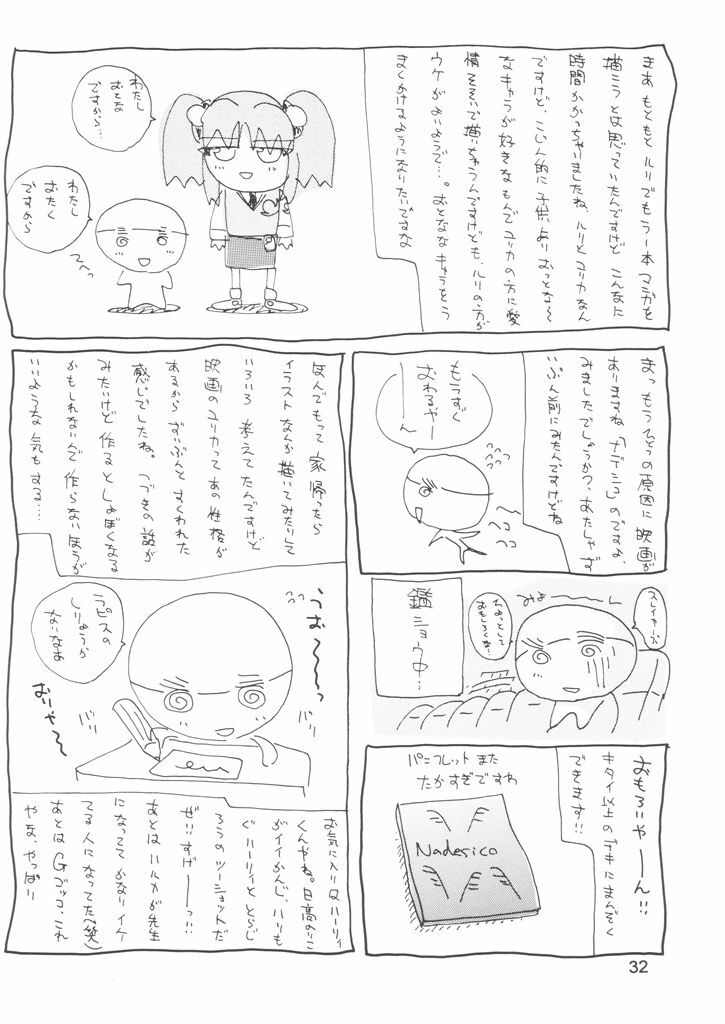 まあ もともと ルリでもう一本 マンガを
描こうとは思っていたんですけど こんなに
時間かかっちゃいましたね、ルリとユリカなん
ですけど、こじん的に子供よりおっとな〜
なキャラが好きなもんでユリカの方に愛
情そそいで描いちゃうんですけども、ルリの方が
ウケがよいようで…。おとななキャラをう
まくかけるようになりたいですな
わたし
おとな
ですから…
わたし
おたく
ですから
てへっ
まっ もうひとつの原因に映画が
ありますね「ナデシコ」のですね、
みましたでしょうか?、あたしゃ ず
いぶん前にみたんですけどね
もうすぐ
おわるやー
ーん
ヘコ
ヘコ
スレイヤーズ
ひょっとして
おもしろくな…
みょ〜〜〜ん
鑑
ショウ中…
おもろいやーん!!
キタイ以上のデキにまんぞく
できます!!
パンフレットまた
たかすぎですわ
Nadesico
ほんでもって 家帰ったら
イラストなんか描いてみたりして
いろいろ 考えてたんですけど
映画のユリカってあの性格が
あるからずいぶんとすくわれた
感じでしたね。つづきの話が
みたいけど 作るとしょぼくなる
かもしれないんで 作らないほうが
いいような 気もする…
うお〜〜っ
ラピスの
しりょうが
ないなあ
おりゃ〜
バリ
バリ
お気に入りはハーリィ
くんやね。日高のりこ
がイイかんじ、ハリも
ぐハーリィととらじ
ろうのツーショットだ
ぜ!!すげーーっ!!
あとはハルカが先生
になっててかなりイケ
てる人になってた(笑)
あとはGゴッコ、これ
やな、やっぱり
32